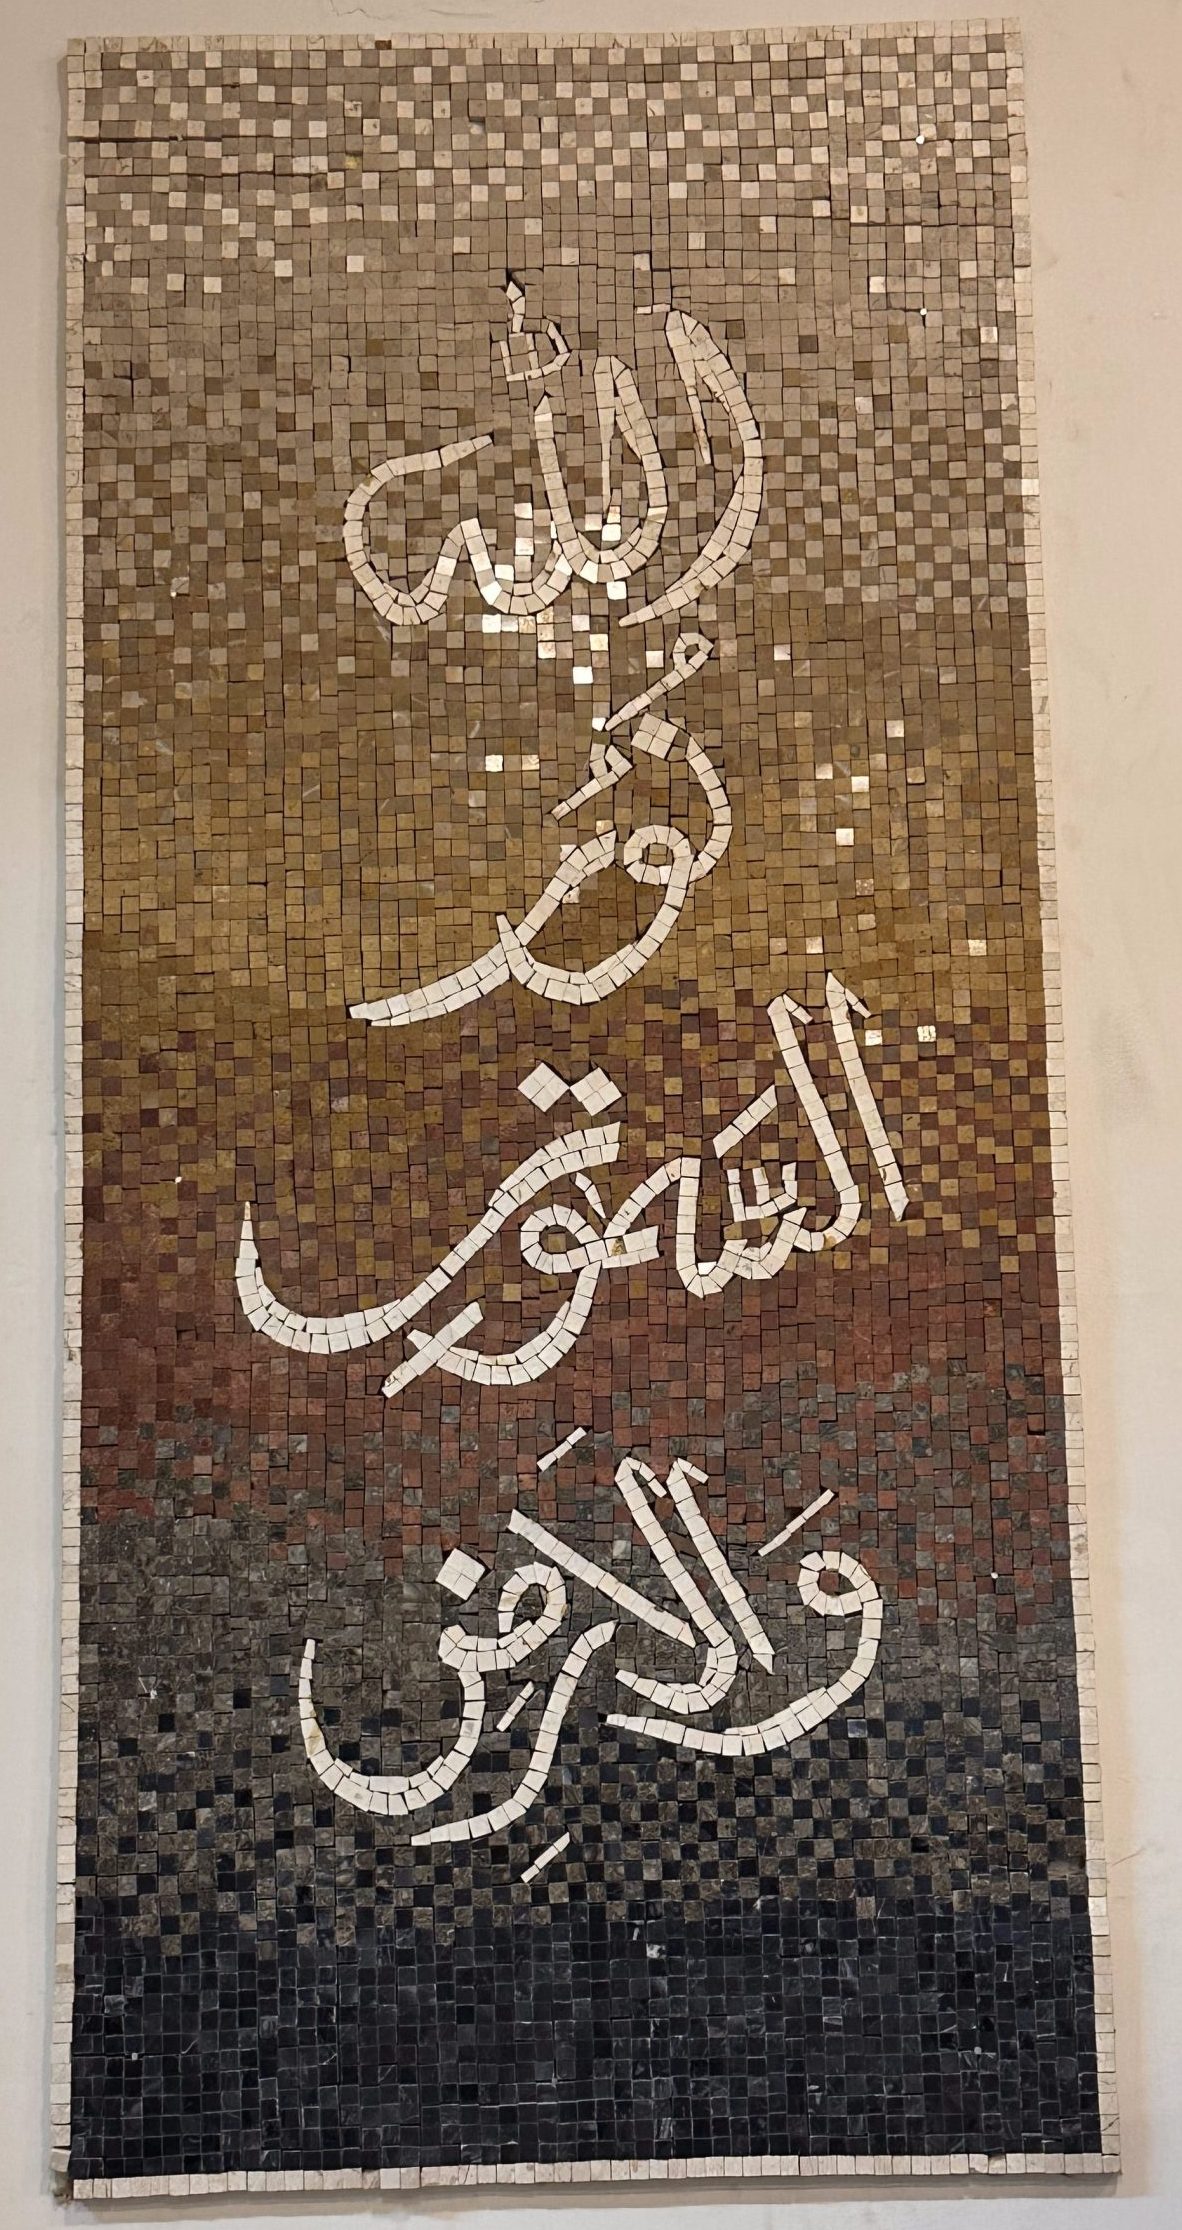 الله
نور
السموت
والارض